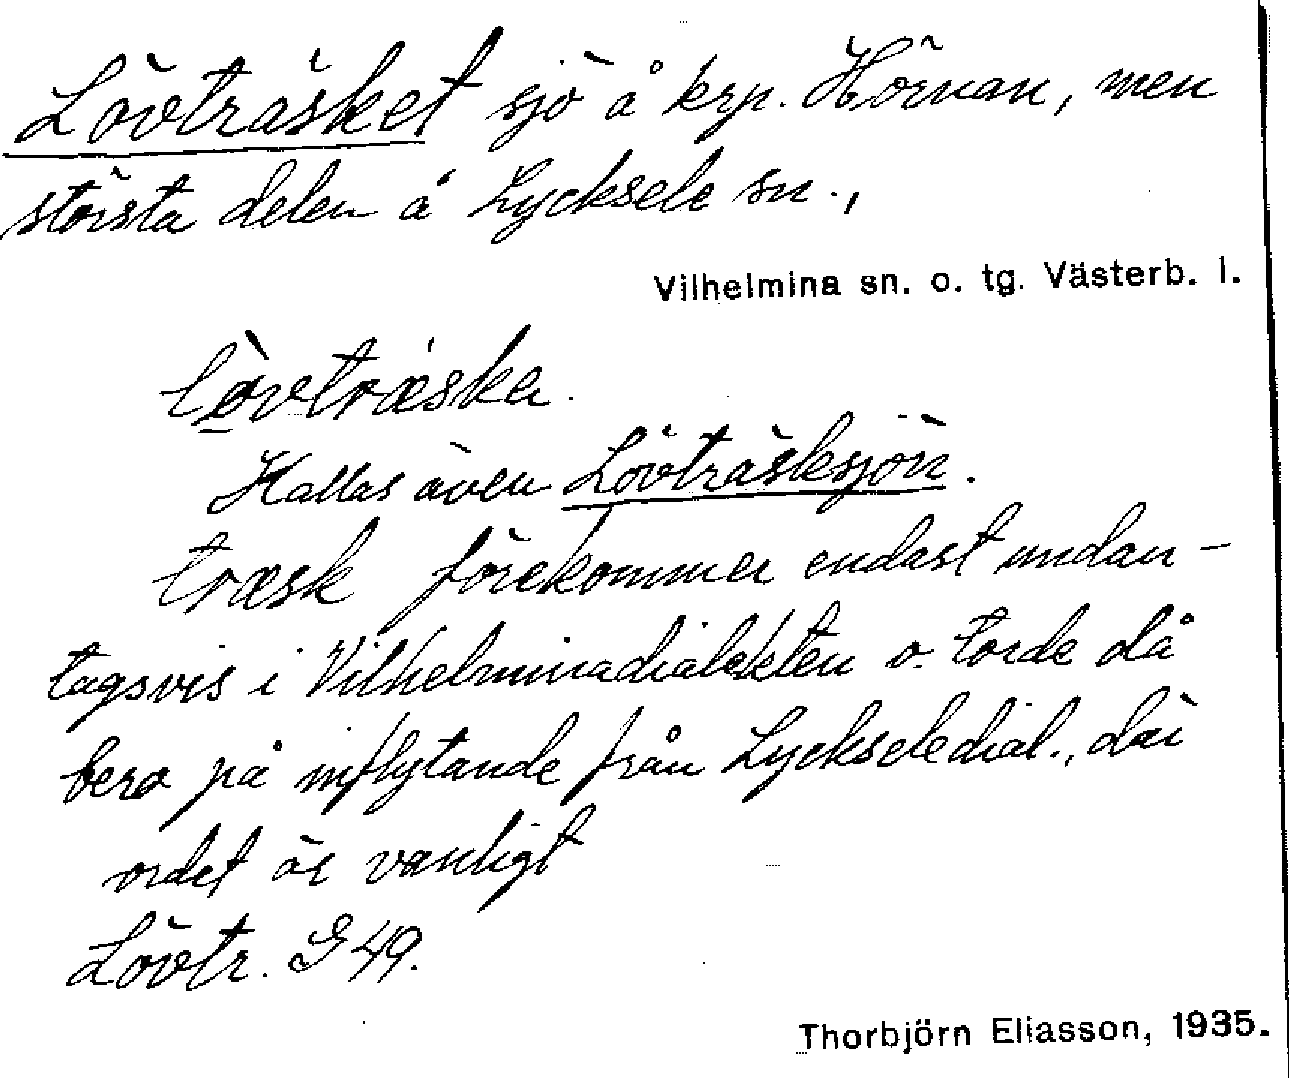 Lövträsket sjö å krp. Hörnan, men
största delen å Lycksele sn.,
Vilhelmina sn. o. tg. Västerb. l.
lø̀vtræska.
Kallas även Lövträsksjön.
træsk förekommer endast undan-
tagsvis i Vilhelminadialekten o. torde då
bero på inflytande från Lyckseledial., där
ordet är vanligt
Lövtr. G 49.
Thorbjörn Eliasson, 1935.